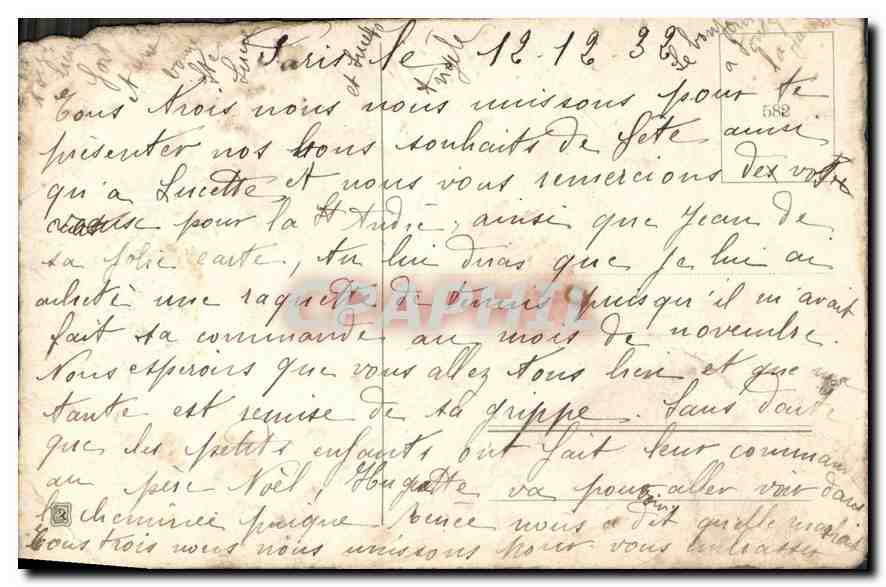 Paris le 12.12.32
Tous trois nous nous unissons pour te
582
présenter nos bons souhaits de fête ainsi
qu'à Lucette et nous vous remercions des votre
pour la St André, ainsi que Jean de
sa jolie carte, tu lui diras que je lui ai
acheté une raquette de tennis puisqu'il m'avait
fait sa commande au mois de novembre.
Nous esperons que vous allez tous bien et que ma
tante est remise de sa grippe. Sans doute
que les petits enfants ont fait leur comman
au père Noël, Huguette va pour aller voir dans
la cheminée puique Renée nous a dit qu'elle
Tous trois nous nous unissons pour vous embrasser
et Lucette
Angèle
Le bonjour
à
CPAPHIL